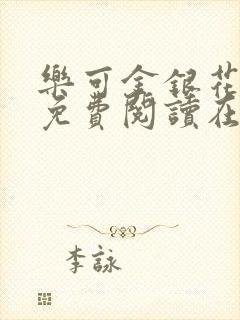 樂可金銀花
免費閱讀在
李詠